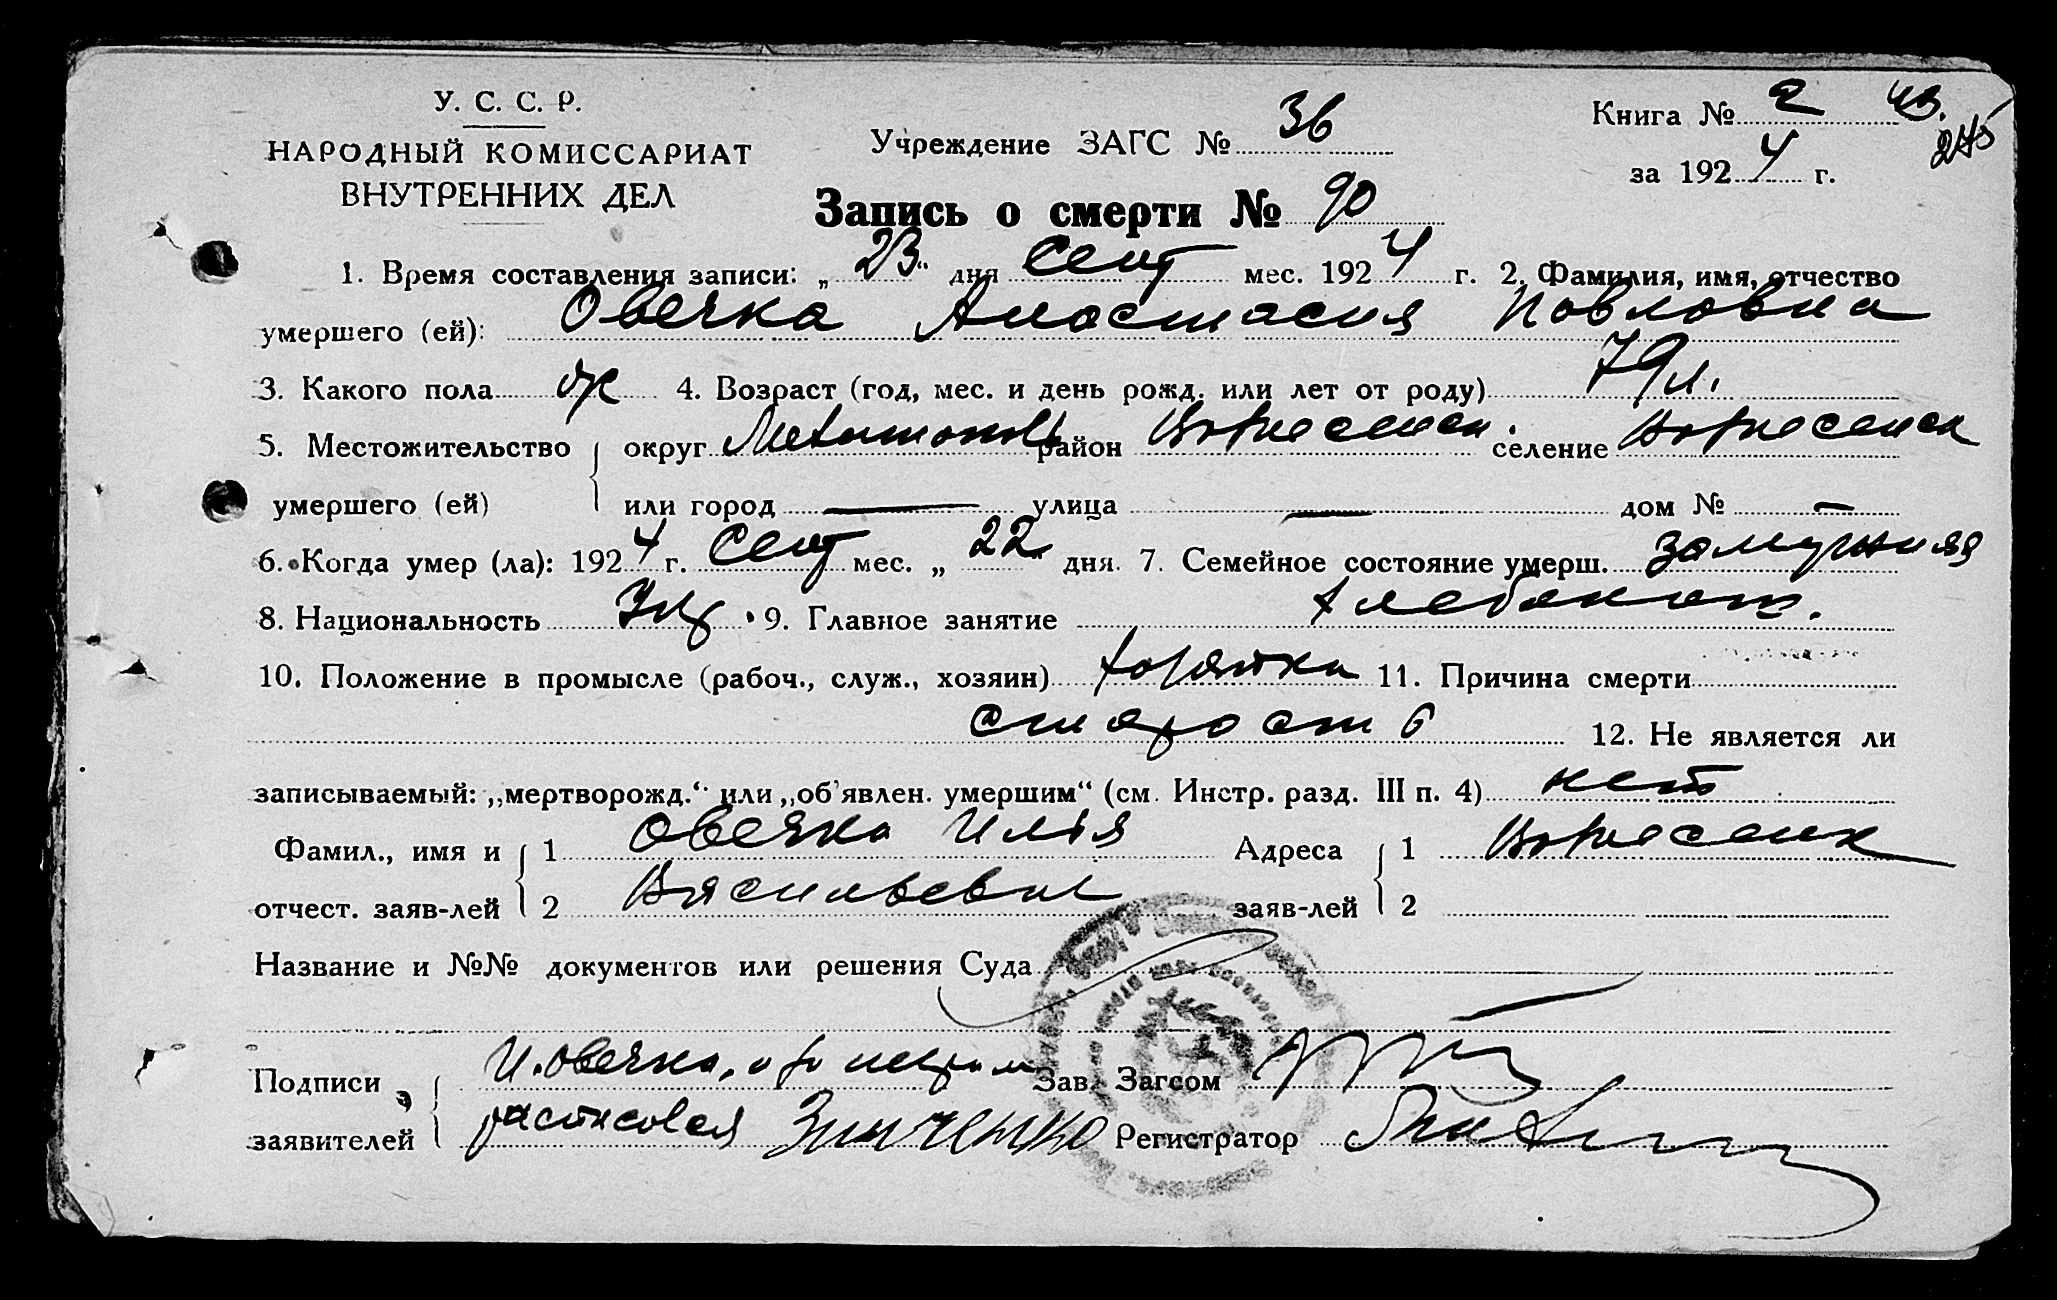 У. С. С. Р.
НАРОДНЫЙ КОМИССАРИАТ
ВНУТРЕННИХ ДЕЛ
Учреждение ЗАГС № 36
Книга № 2 43.
245
за 1924 г.
Запись о смерти № 90
1. Время составления записи: „23“ дня Сент мес. 1924 г. 2. Фамилия, имя, отчество
умершего (ей): Овечка Анастасия Павловна
3. Какого пола ж 4. Возраст (год, мес. и день рожд. или лет от роду) 79 л.
5. Местожительство округ Мелитополь район Вознесенск. селение Вознесенск
умершего (ей) или город — улица — дом № —
6. Когда умер (ла): 1924 г. Сент мес. „22“ дня. 7. Семейное состояние умерш. замужняя
8. Национальность Укр. 9. Главное занятие хлебопаш.
10. Положение в промысле (рабоч., служ., хозяин) хозяйка 11. Причина смерти
старость 12. Не является ли
записываемый: „мертворожд.“ или „об'явлен. умершим“ (см. Инстр. разд. III п. 4) нет
Фамил., имя и 1 Овечка Илья Адреса 1 Вознесенк
отчест. заяв-лей 2 Васильевич заяв-лей 2
Название и №№ документов или решения Суда
Подписи И. Овечка, Зав. Загсом
заявителей расписался Зинченко Регистратор